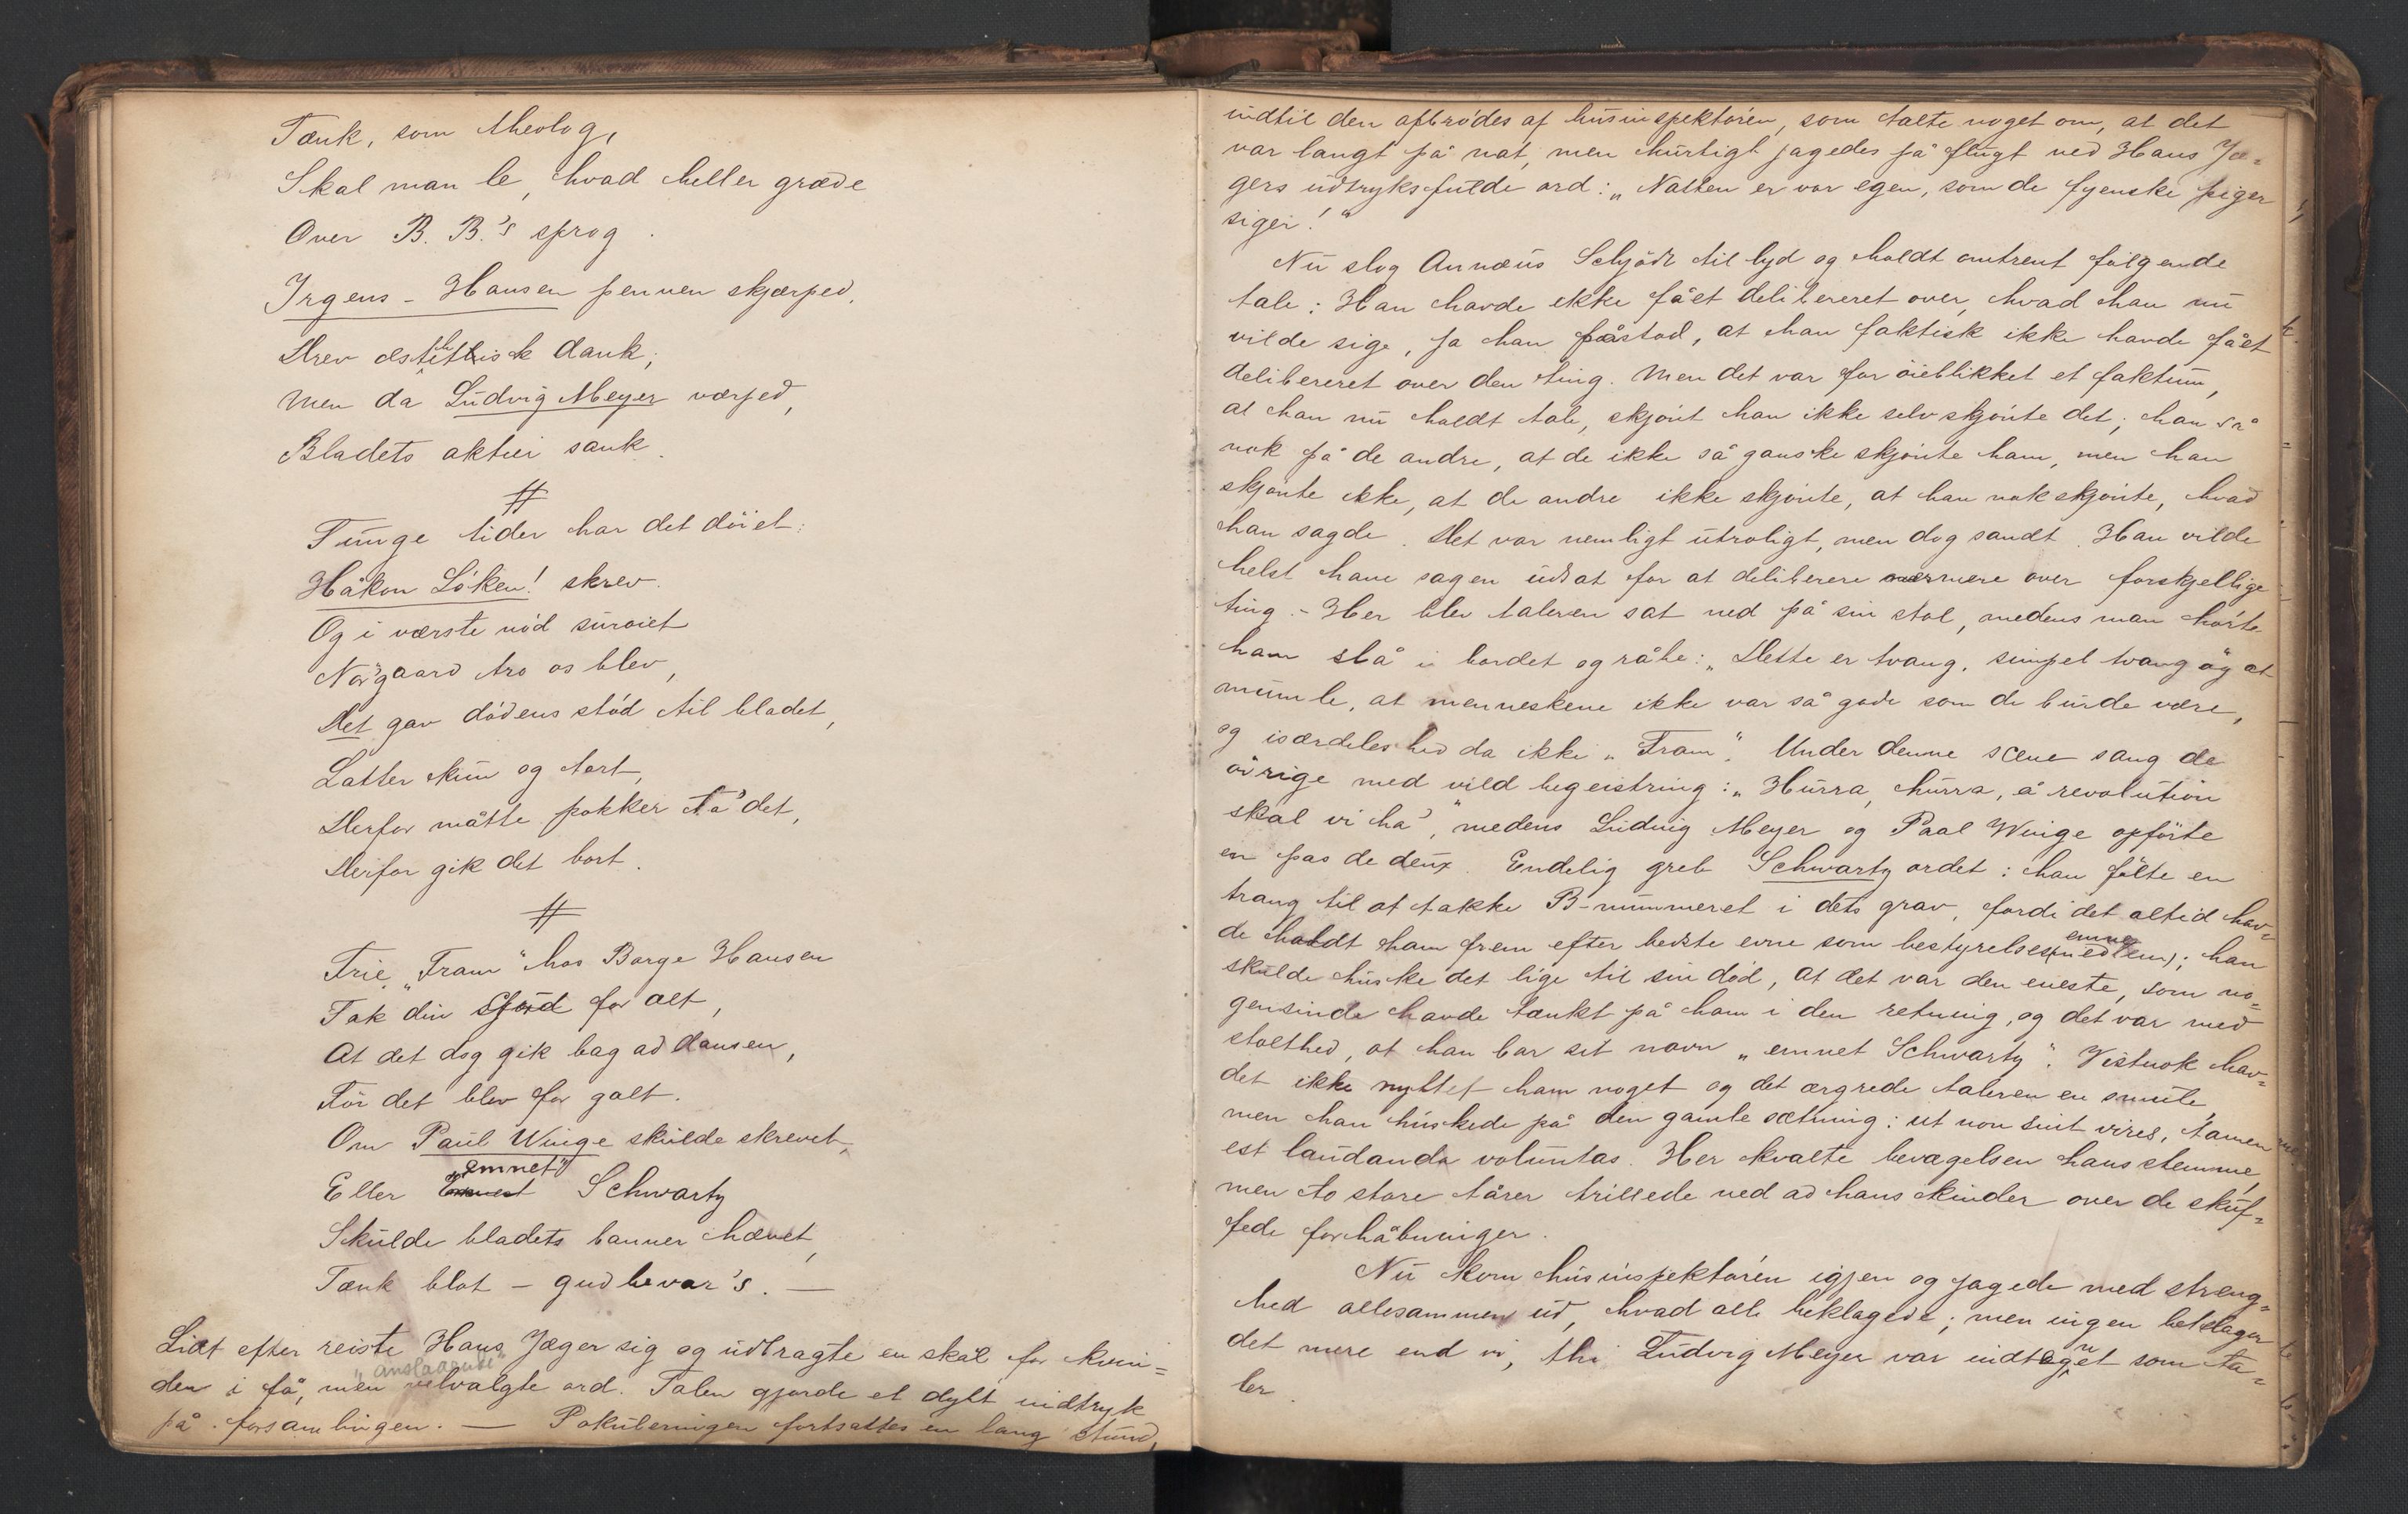 Tænk, som theolog,
Skal man le, hvad heller græde
Over B. B.'s sprog.
Irgens-Hansen pennen skjærped,
Drev æsthetisk dank;
Men da Ludvig Meyer værped,
Bladets aktier sank.
#
Tunge tider har det döiet:
Håkon Löken! skrev.
Og i værste nöd
Nörgaard tro os blev,
Det gav dödens stöd til bladet,
Latter kun og tort,
Derfor måtte pokker ta' det,
Derfor gik det bort.
#
Frie „Fram" hos Borge Hansen
Tak din Gjöd for alt,
At det dog gik bag ad dansen,
För det blev for galt.
Om Paul Winge skulde skrevet,
Eller „emnet" Schwartz
Skulde bladets banner hævet,
Tænk blot – gud bevar's. —
Lidt efter reiste Hans Jæger sig og udbragte en skål for kvin=
den i få, men „anslaaende" velvalgte ord. Talen gjorde et dybt indtryk
på forsamlingen. — Pokuleringen fortsattes en lang stund,
indtil den afbrödes af husinspektören, som talte noget om, at det
var langt på nat, men hurtigt jagedes på flugt ved Hans Jæ=
gers udtryksfulde ord: „Natten er vor egen, som de fyenske piger
siger!"
Nu slog Annæus Schjödt til lyd og holdt omtrent fölgende
tale: Han havde ikke fået delibereret over, hvad han nu
vilde sige, ja han påstod, at han faktisk ikke havde fået
delibereret over den ting. Men det var for öieblikket et faktum,
at han nu holdt tale, skjönt han ikke selv skjönte det; han så
nok på de andre, at de ikke så ganske skjönte ham, men han
skjönte ikke, at de andre ikke skjönte, at han nok skjönte, hvad
han sagde. Det var nemligt utroligt, men dog sandt. Han vilde
helst have sagen udsat for at deliberere nærmere over forskjellige
ting. – Her blev taleren sat ned på sin stol, medens man hörte
ham slå i bordet og råbe: „Dette er tvang, simpel tvang" og at
mumle, at menneskene ikke var så gode som de burde være,
og isærdeleshed da ikke „Fram". Under denne scene sang de
övrige med vild begeistring: „Hurra, hurra, å revolution
skal vi ha'," medens Ludvig Meyer og Paal Winge opförte
en pas de deux. Endelig greb Schwartz ordet: han fölte en
trang til at takke B-nummeret i dets grav, fordi det altid hav=
de holdt ham frem efter bedste evne som bestyrelses(medlem) emne; han
skulde huske det lige til sin död, at det var den eneste, som no=
gensinde havde tænkt på ham i den retning, og det var med
stolthed, at han bar sit navn „emnet Schwartz". Vistnok hav=
det ikke nyttet ham noget og det ærgrede taleren en smule,
men han huskede på den gamle sætning: ut non sint vires, tamen
est laudanda voluntas. Her kvalte bevægelsen hans stemme,
men to store tårer trillede ned ad hans kinder over de skuf=
fede forhåbninger.
Nu kom husinspektören igjen og jagede med streng=
hed allesammen ud, hvad alle beklagede; men ingen beklager
det mere end vi, thi Ludvig Meyer var indtegnet som ta=
ler.